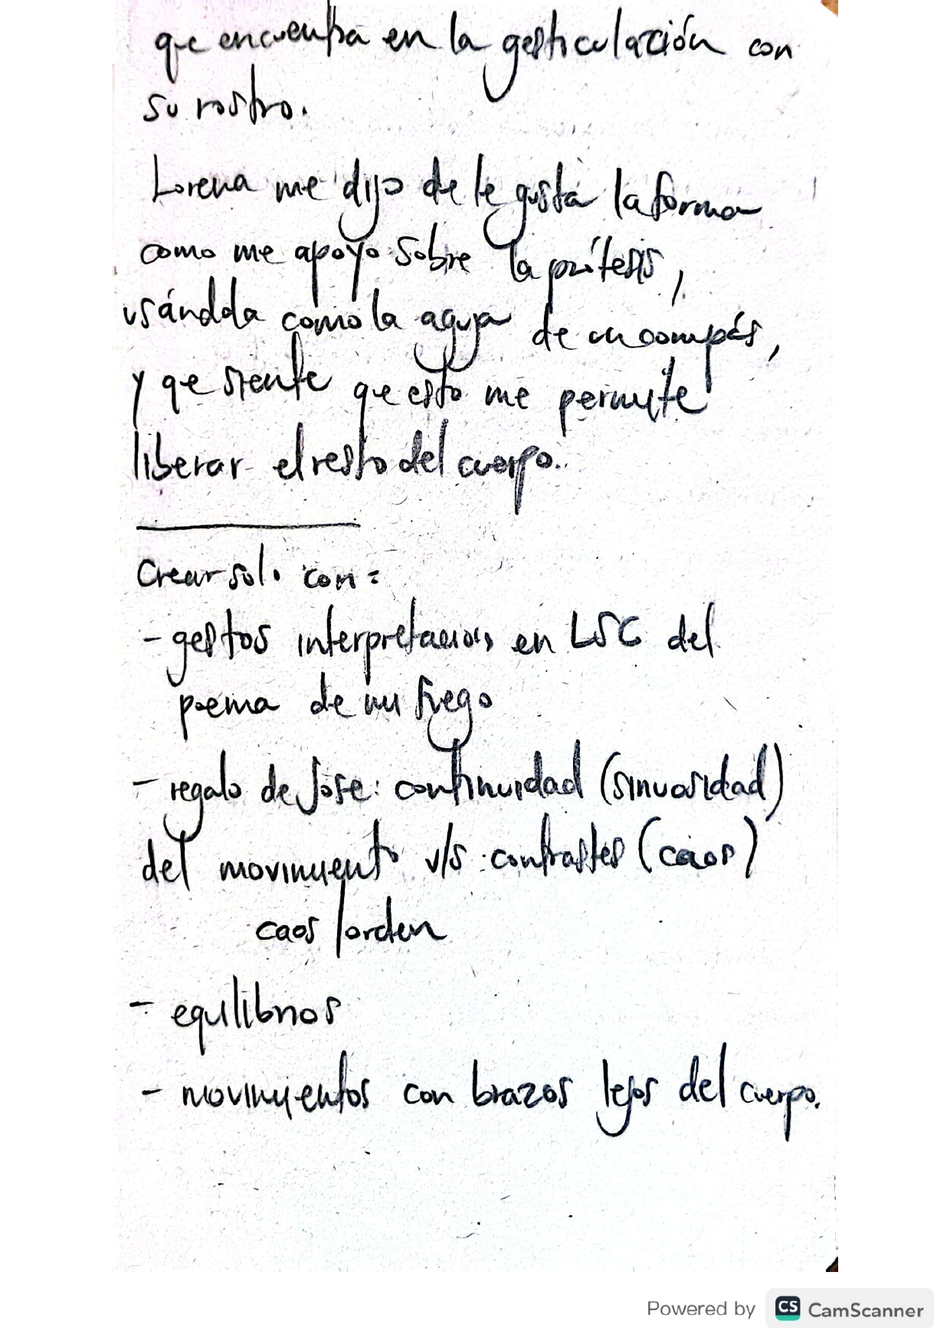 que encuentra en la gesticulación con
su rostro.
Lorena me dijo de le gusta la forma
como me apoyo sobre la prótesis,
usándola como la aguja de un compás,
y que siente que esto me permite
liberar el resto del cuerpo.
Crear solo con:
- gestos interpretación en LSC del
poema de mi fuego
- regalo de Jose: continuidad (sinuosidad)
del movimiento v/s contrastes (caos)
caos/orden
- equilibrios
- movimientos con brazos lejos del cuerpo.
Powered by CS CamScanner